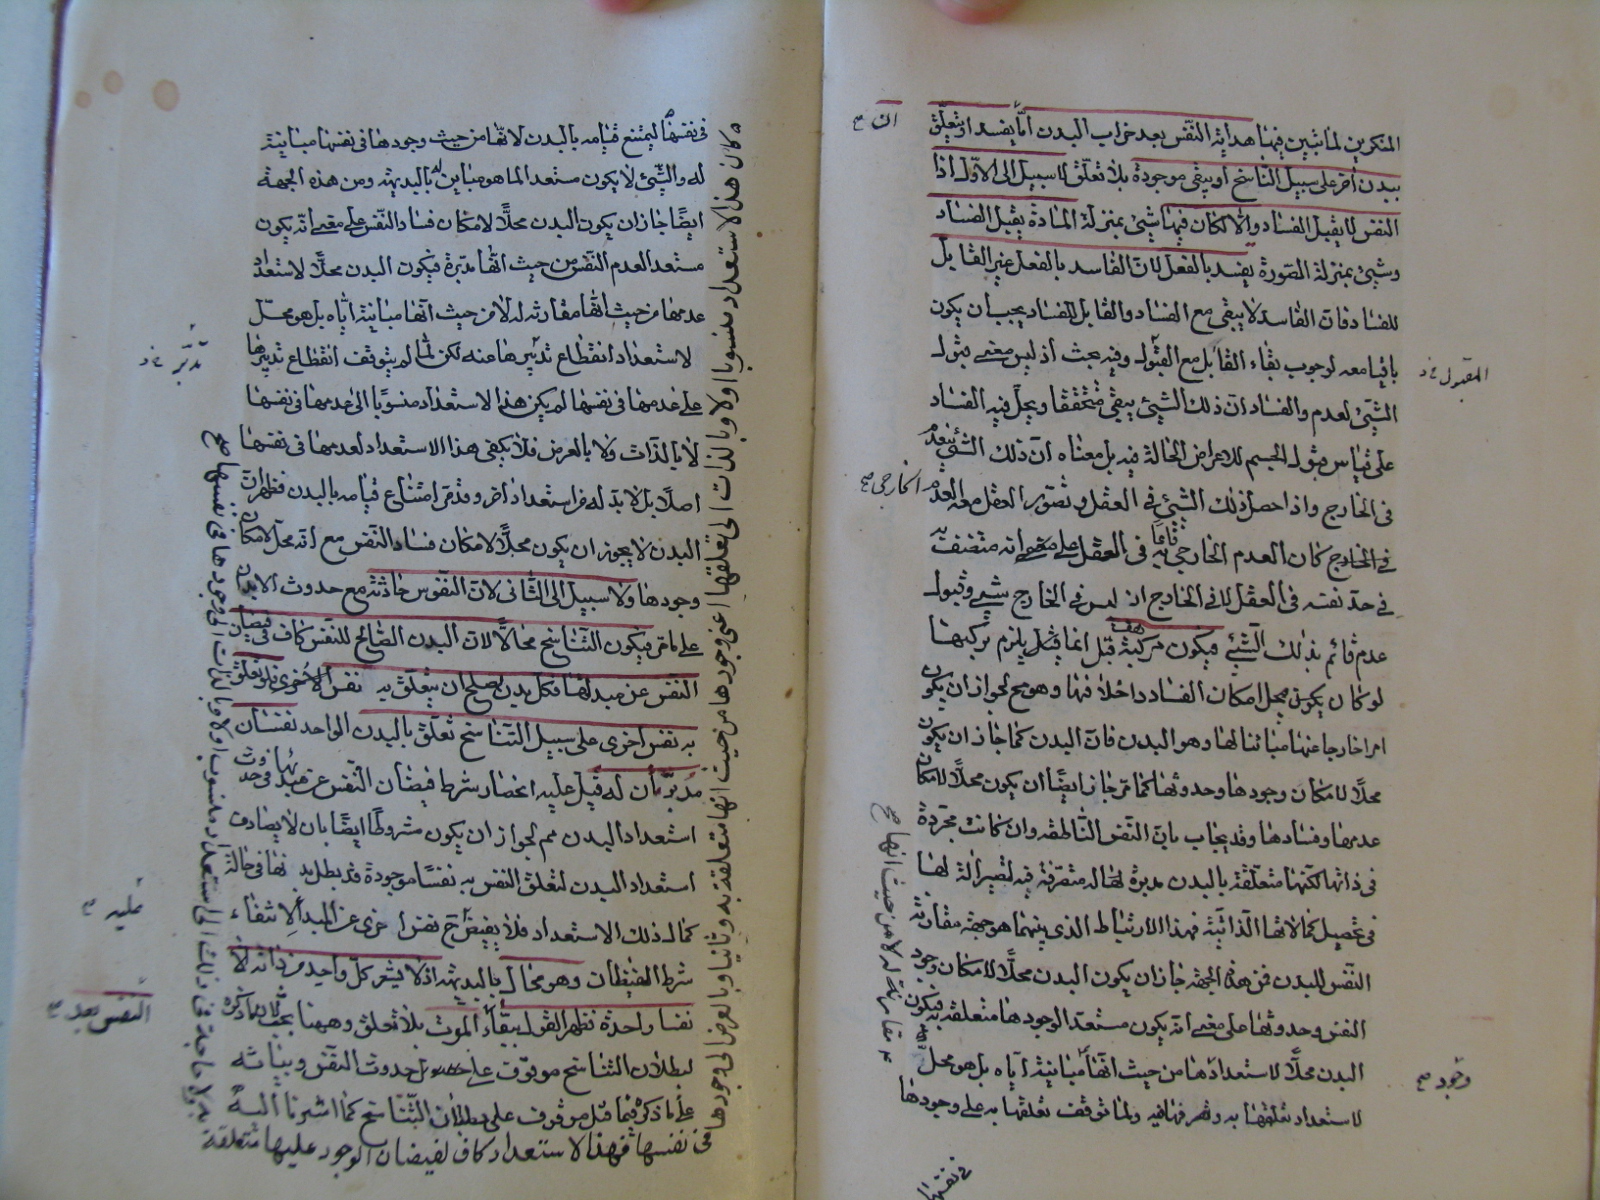 المنكرين لما تبين فيها هداية النفس بعد خراب البدن اما يفسد او يتعلق
ان صح
ببدن اخر على سبيل التناسخ او يبقى موجودة بلا تعلق لا سبيل الى الاول اذا
النفس لا يقبل الفساد والا لكان فيها شئ بمنزلة المادة يقبل الفساد
وشئ بمنزلة الصورة يفسد بالفعل لان الفاسد بالفعل غير القابل
للفساد فان الفاسد لا يبقى مع الفساد والقابل للفساد يجب ان يكون
باقيا معه لوجوب بقاء القابل مع القبول وفيه بحث اذ ليس معنى قبول
المقبول
الشئ لعدم والفساد ان ذلك الشئ يبقى متحققا ويحل فيه الفساد
على قياس قبول الجسم للاعراض الحالة فيه بل معناه ان ذلك الشئ ينعدم
فى الخارج واذا حصل ذلك الشئ فى العقل وتصور العقل معه العدم
الخارجى صح
فى الخارج كان العدم الخارجى قائما به فى العقل على معنى انه متصف به
فى حد نفسه فى العقل لا فى الخارج اذ ليس فى الخارج شئ وقبول
عدم قائم بذلك الشئ فيكون مركبة هف قيل انما يلزم تركبها
لو كان محل امكان الفساد داخلا فيها وهو مم لجواز ان يكون
امرا خارجا عنها مباينا لها وهو البدن فان البدن كما جاز ان يكون
محلا لامكان وجودها وحدوثها كما مر جاز ايضا ان يكون محلا لامكان
عدمها وفسادها وقد يجاب بان النفس الناطقة وان كانت مجردة
فى ذاتها لكنها متعلقة بالبدن مدبرة له متصرفة فيه لصيرالة لها
فى تحصيل كمالاتها الذاتية فهذا الارتباط الذى بينهما هو جهة مقارنة
النفس للبدن فمن هذه الجهة جاز ان يكون البدن محلا لامكان وجود
النفس وحدوثها على معنى انه يكون مستعد الوجودها متعلقة به فيكون
البدن محلا لاستعدادها من حيث انها مباينة اياه بل هو محل
وجود صح
لاستعداد تعلقها به وتصرفها فيه ولما توقف تعلقها به على وجودها
فى نفسها
مقارنة له لا من حيث انها صح
فى نفسها ليمتنع قيامه بالبدن لانها من حيث وجودها فى نفسها مباينة
له والشئ لا يكون مستعد الما هو مباين له بالبديهة ومن هذه الجهة
ايضا جاز ان يكون البدن محلا لامكان فساد النفس على معنى انه يكون
مستعد العدم النفس من حيث انها مدبرة فيكون البدن محلا لاستعداد
عدمها من حيث انها مقارنة له لا من حيث انها مباينة اياه بل هو محل
لاستعداد انقطاع تدبيرها عنه لكن لما لم يتوقف انقطاع تدبيرها
على عدمها فى نفسها لم يكن هذا الاستعداد منسوبا الى عدمها فى نفسها
لا بالذات ولا بالعرض فلا يكفى هذا الاستعداد لعدمها فى نفسها
اصلا بل لا بد له من استعداد اخر وقد مر امتناع قيامه بالبدن فظهر ان
البدن لا يجوز ان يكون محلا لامكان فساد النفس مع انه محل لامكان
وجودها ولا سبيل الى الثانى لان النفوس حادثة مع حدوث الابدان
على ما مر فيكون التناسخ محالا لان البدن الصالح للنفس كاف فى فيضان
النفس عن مبدئها فكل بدن يصلح ان يتعلق به نفس الاخرى فلو تعلق
به نفس اخرى على سبيل التناسخ تعلق بالبدن الواحد نفسان
مدبرتان له قيل عليه انحصار شرط فيضان النفس عن مبدئها فى حدوث
استعداد البدن مم لجواز ان يكون مشروطا ايضا بان لا يصادف
استعداد البدن لتعلق النفس به نفسا موجودة قد بطل بدنها فى حالة
كمال ذلك الاستعداد فلا يفيض ح نفس اخرى عن المبدأ لانتفاء
عليه صح
شرط الفيضان وهو محال بالبديهة اذ لا يشعر كل واحد من ذاته الا
نفسا واحدة فظهر القول ببقاء الموت بلا تعلق وههنا بحث لان ما ذكره
النفس بعد صح
لبطلان التناسخ موقوف على حدوث النفس وبيانه
على ما ذكره فيما قبل موقوف على بطلان التناسخ كما اشرنا اليه
كان هذا الاستعداد منسوبا اولا وبالذات الى تعلقها اعنى وجودها من حيث انها متعلقة به وثانيا وبالعرض الى وجودها
فى نفسها فهذا الاستعداد كاف لفيضان الوجود عليها متعلقة
به ولا حاجة فى ذلك الى استعداد منسوب اولا وبالذات الى وجودها فى نفسها صح